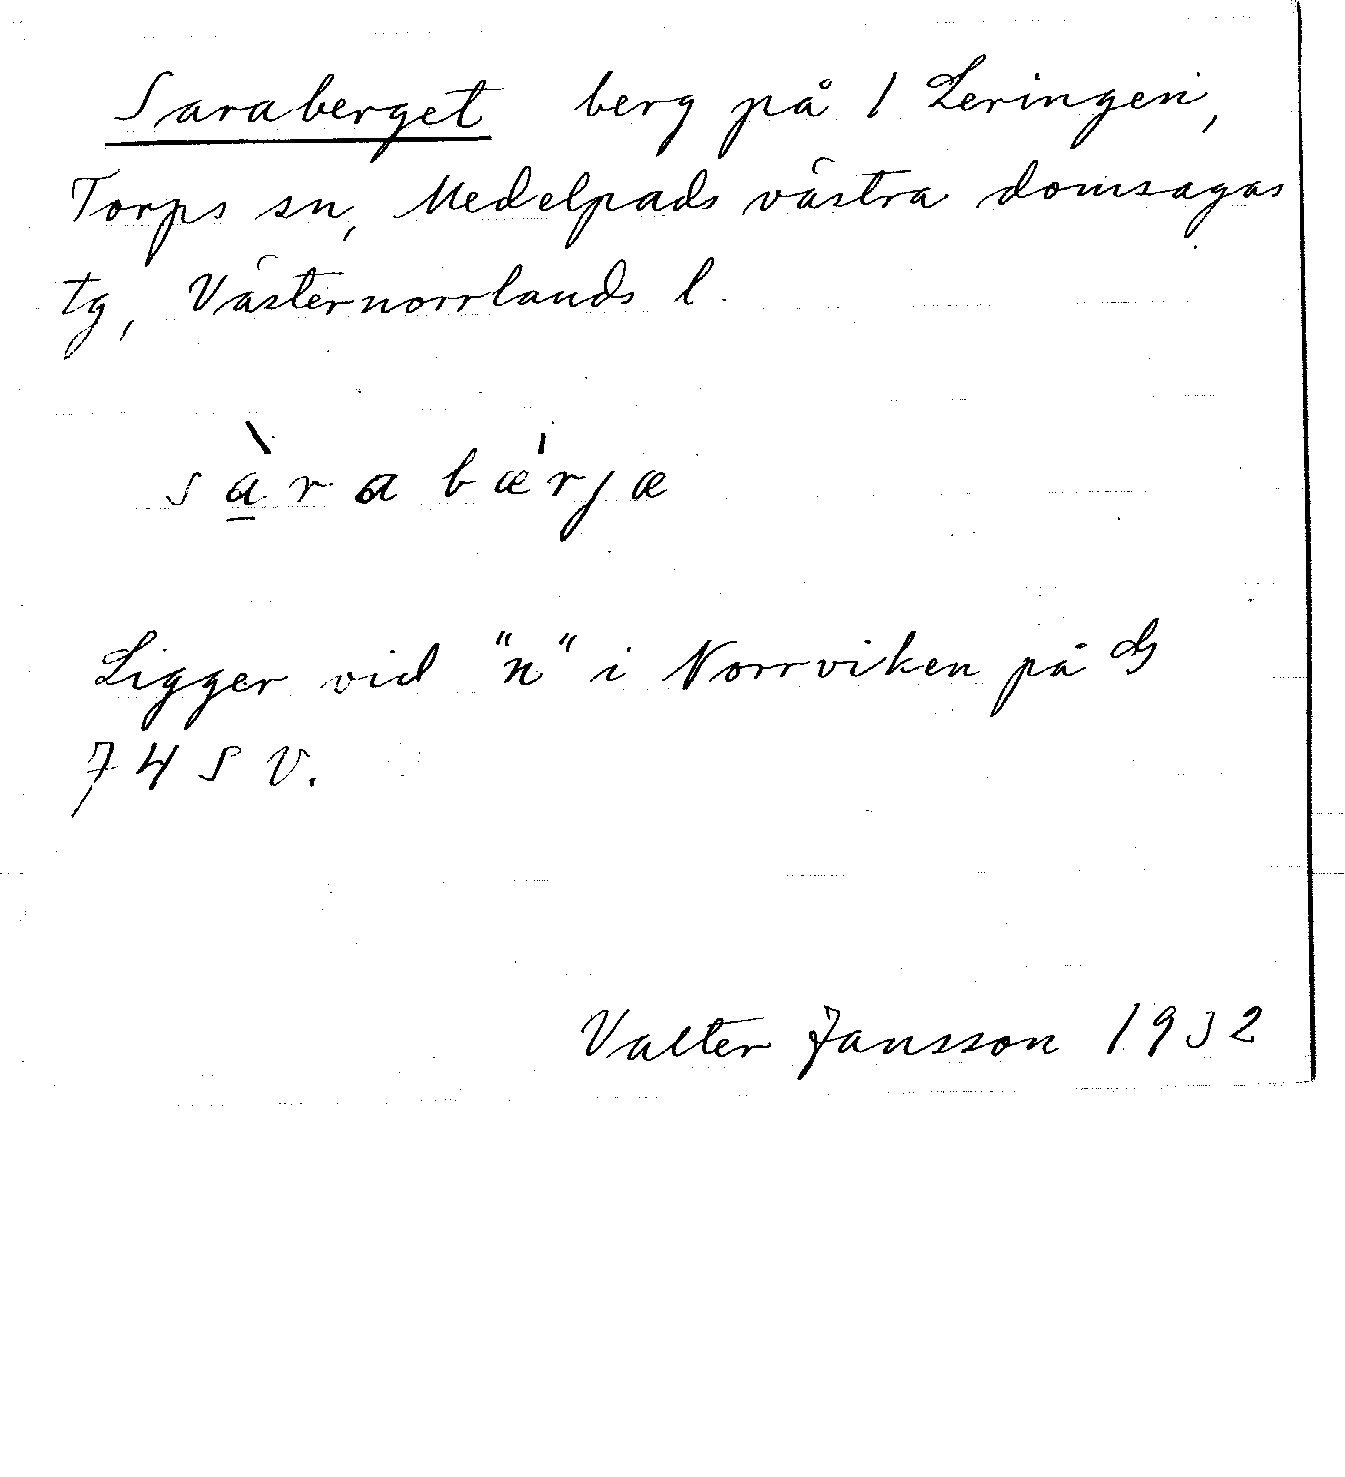 Saraberget berg på 1 Leringen,
Torps sn, Medelpads västra domsagas
tg, Västernorrlands l.
sàrabæ'rjæ
Ligger vid "n" i Norrviken på
74 S V.
Valter Jansson 1932